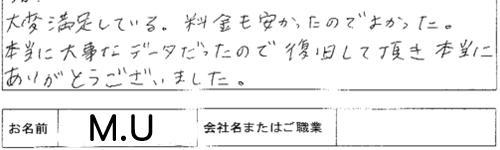 大変満足している。料金も安かったのでよかった。
本当に大事なデータだったので復旧して頂き本当に
ありがとうございました。
お名前 M.U 会社名またはご職業